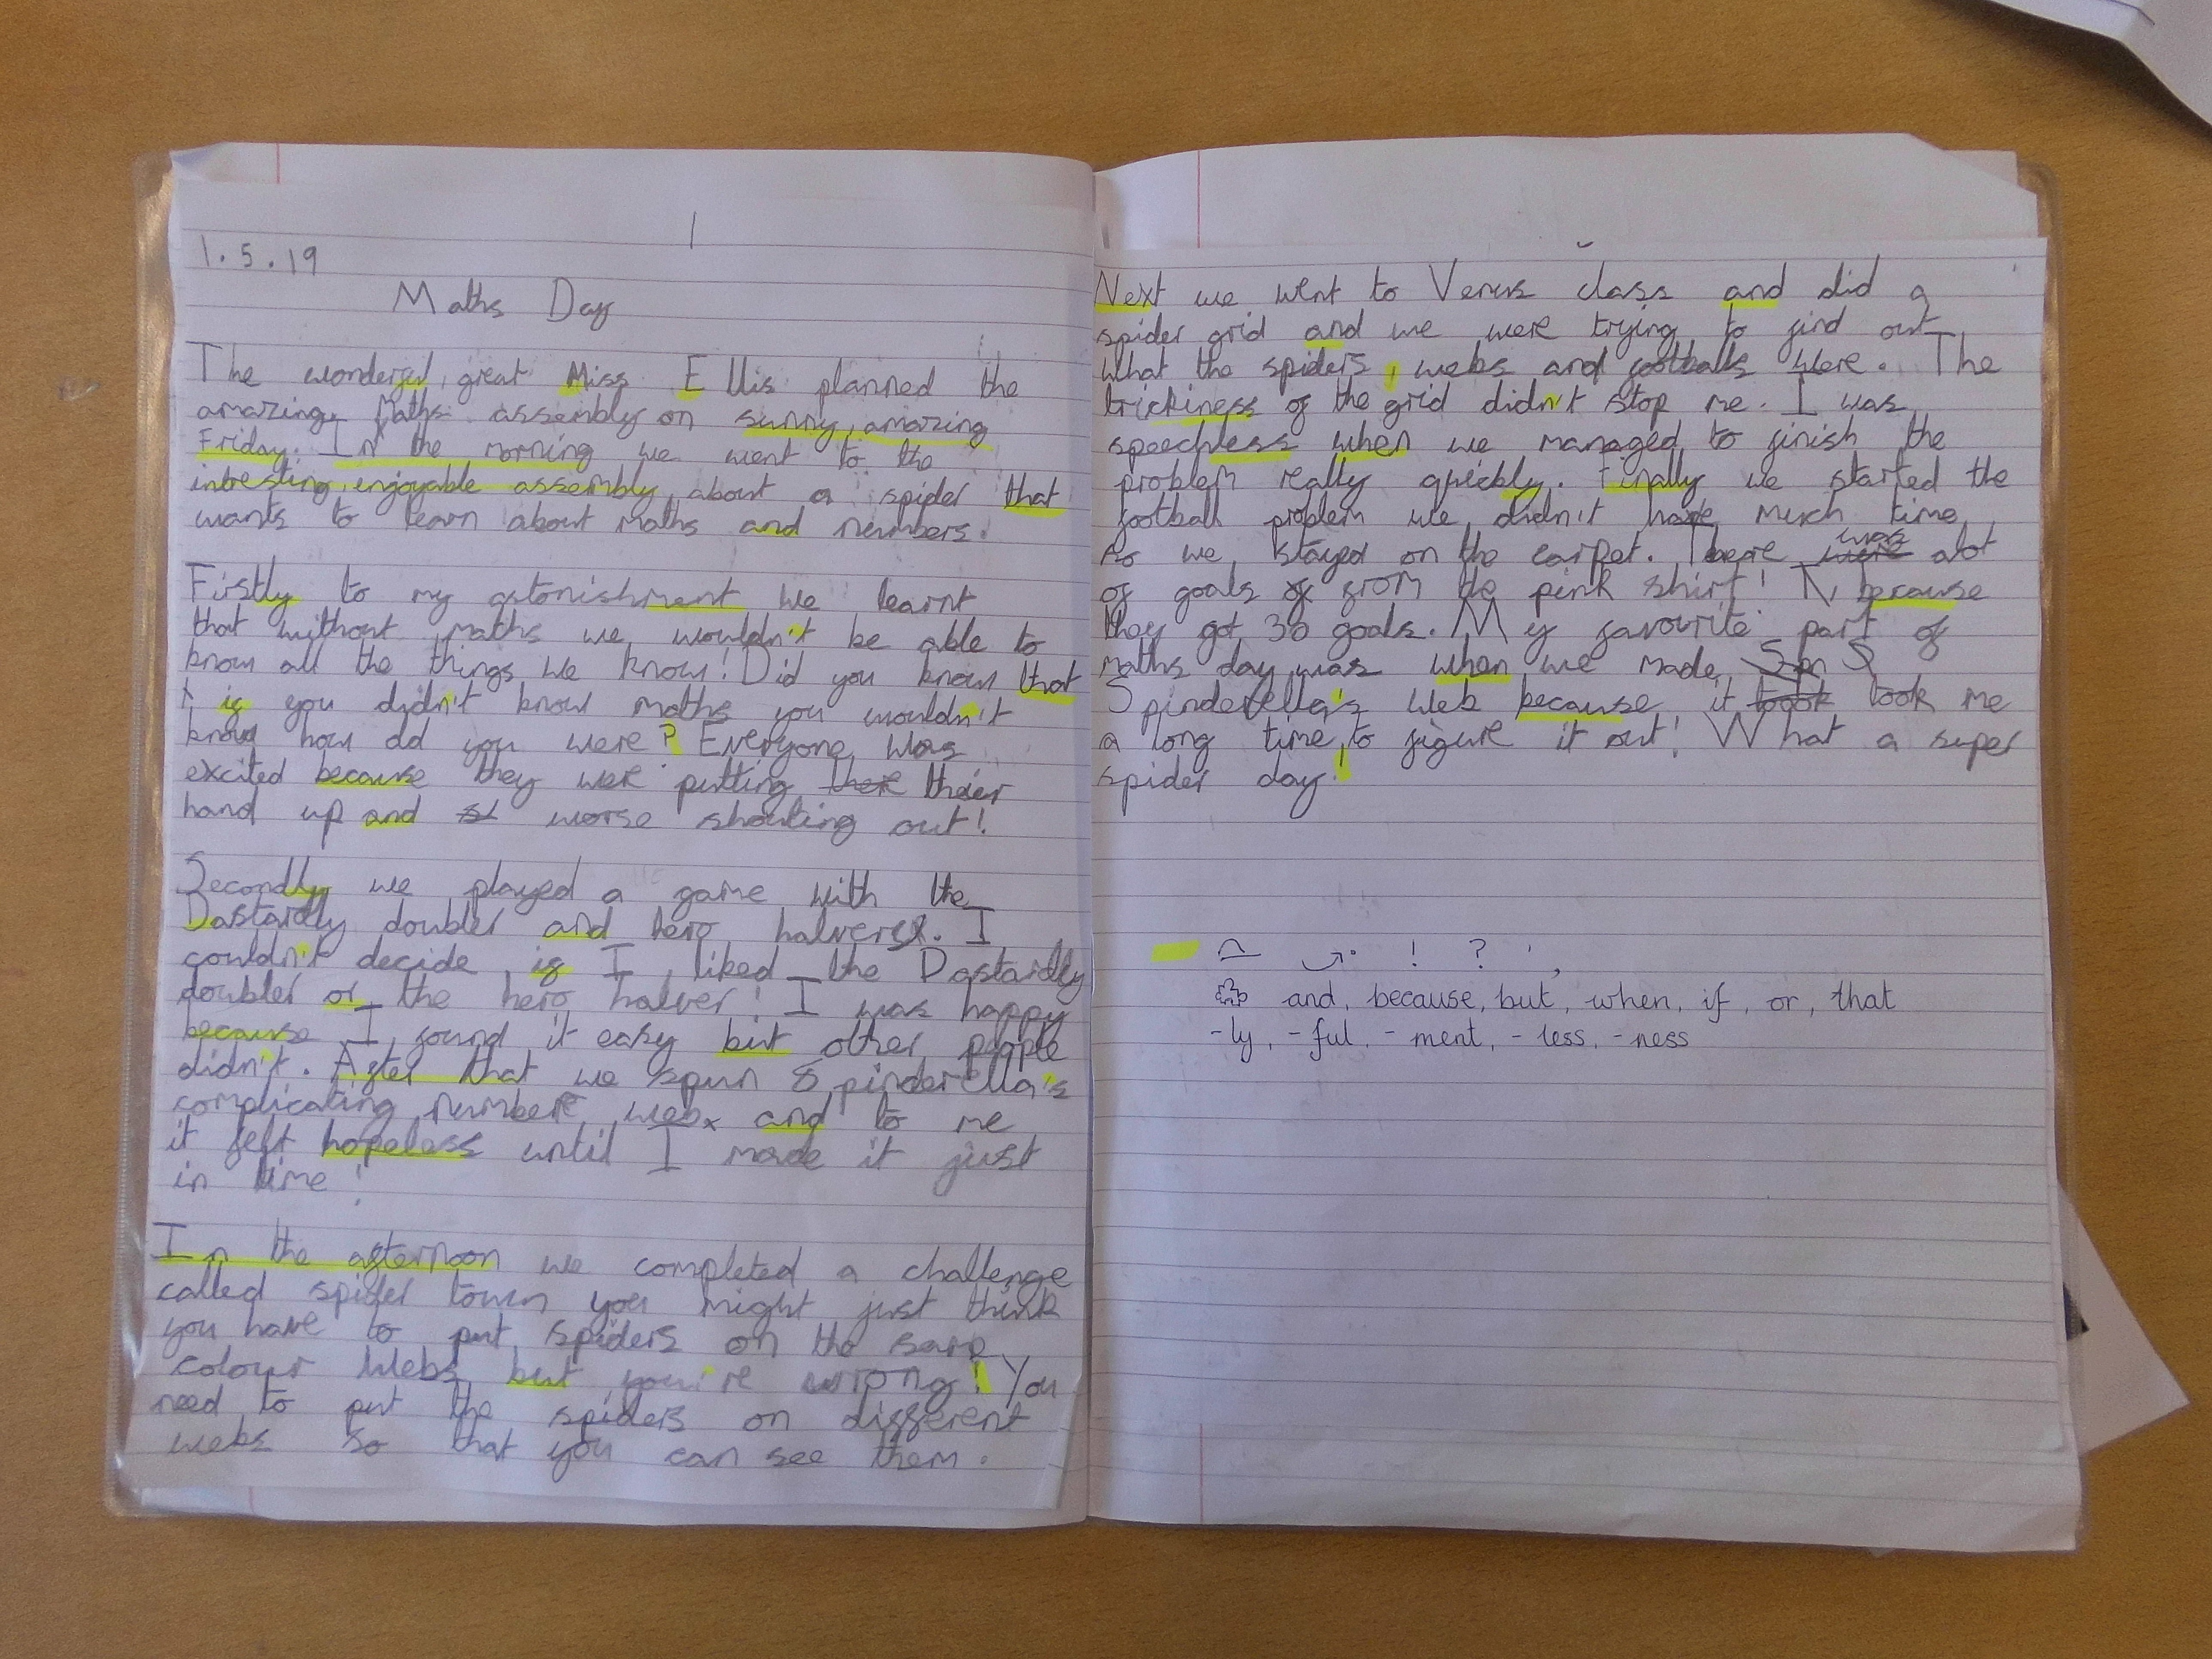 1.5.19
Maths Day
The wonderful, great Miss Ellis planned the
amazing Maths assembly on sunny, amazing
Friday. In the morning we went to the
intresting, enjoyable assembly about a spider that
wants to learn about maths and numbers.
Firstly to my astonishment we learnt
that without maths we wouldn't be able to
know all the things we know! Did you know that
if you didn't know maths you wouldn't
know how old you were? Everyone was
excited because they were putting there their
hand up and worse shouting out!
Secondly we played a game with the
Dastardly doubler and hero halver. I
couldn't decide if I liked the Dastardly
doubler or the hero halver! I was happy
because I found it easy but other people
didn't. After that we spun Spinderella's
complicating number web and to me
it felt hopeless until I made it just
in time!
In the afternoon we completed a challenge
called spider town you might just think
you have to put spiders on the same
colour webs but you're wrong! You
need to put the spiders on different
webs so that you can see them.
Next we went to Venus class and did a
spider grid and we were trying to find out
what the spiders, webs and footballs were. The
trickiness of the grid didn't stop me. I was
speechless when we managed to finish the
problem really quickly. Finally we started the
football problem we didn't have much time
so we stayed on the carpet. There were was alot
of goals of from the pink shirt! because
they got 30 goals. My favourite part of
maths day was when we made Spn S
Spinderella's web because it took took me
a long time to figure it out! What a super
spider day!
! ? ' ,
and, because, but, when, if, or, that
-ly, -ful, -ment, -less, -ness